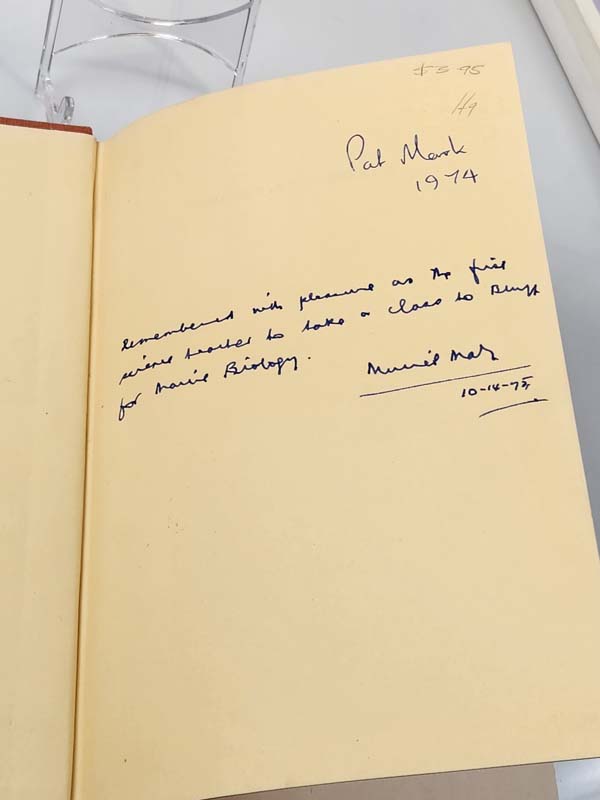 $5-95
H9
Pat Mark
1974
Remembered with pleasure as the first
science teacher to take a class to Bluff
for Marine Biology.
10-14-75